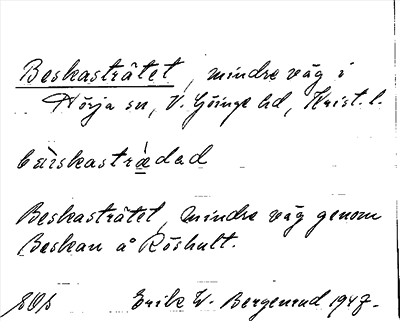 Beskastrâtet, mindre väg i
Hörja sn, V. Göinge hd, Krist. l.
bæiskastràdad
Beskastråtet, mindre väg genom
Beskan å Röshult.
Erik W. Bergenrud 1947.